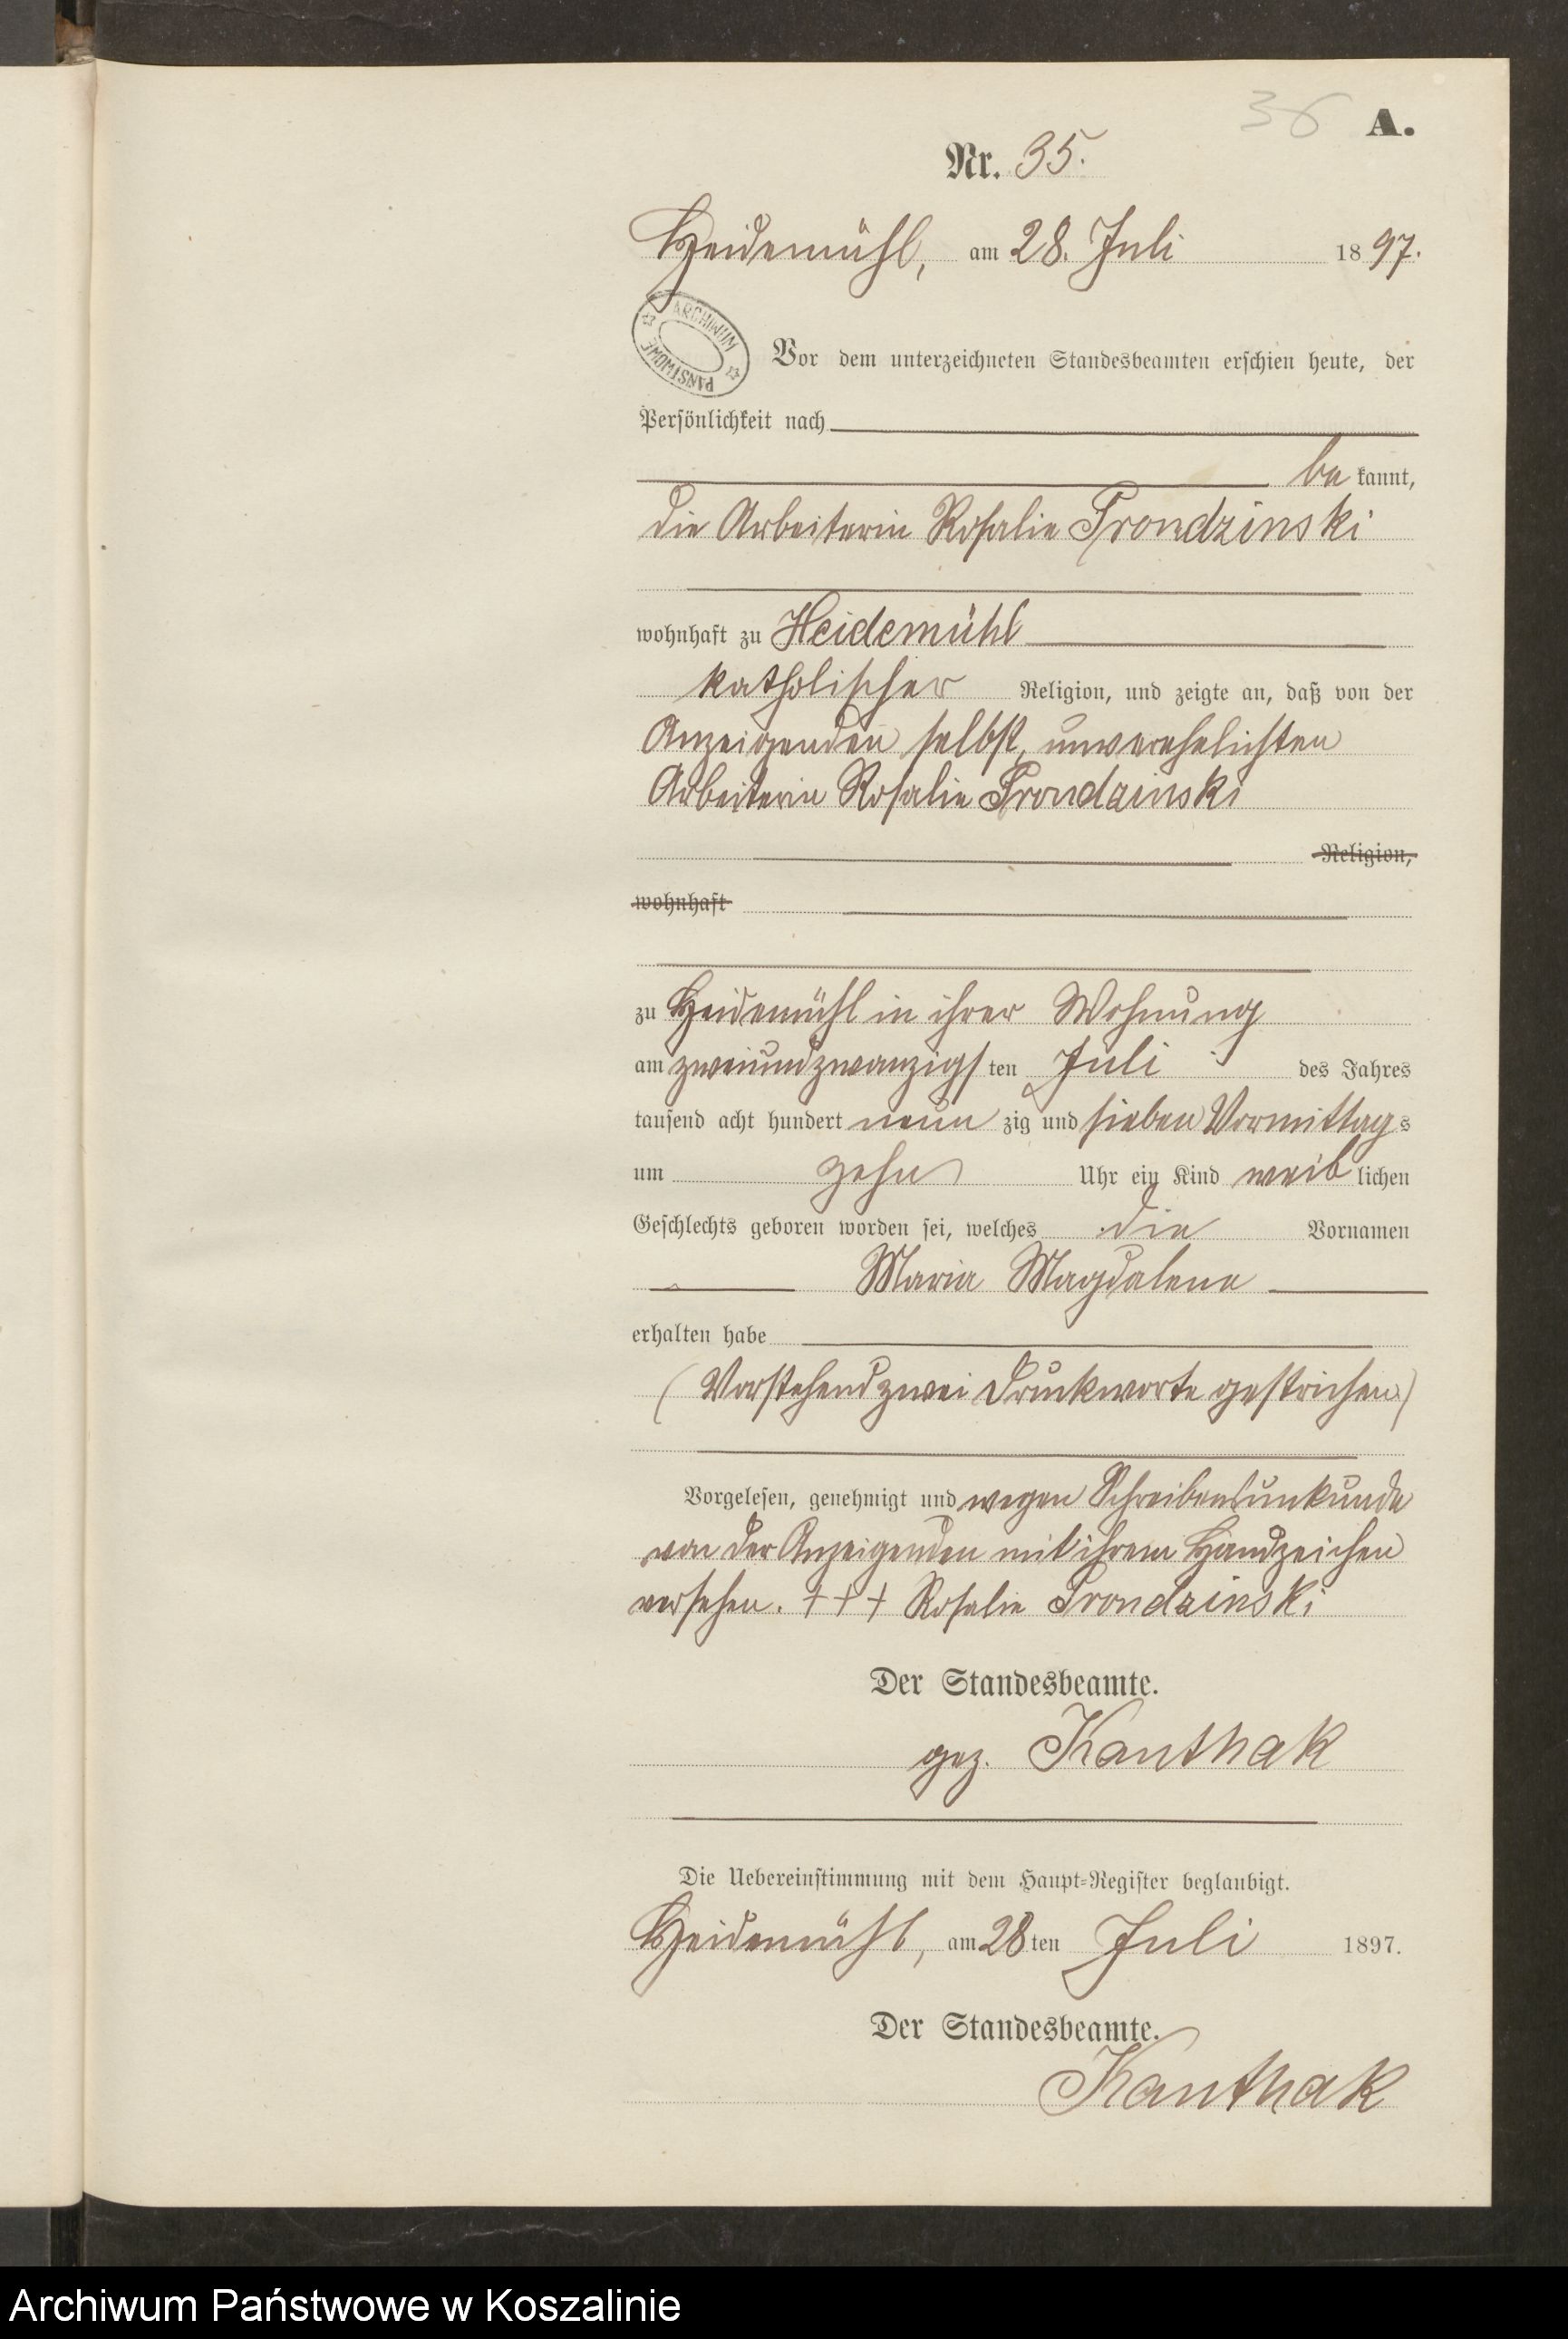 36 A.
Nr. 35.
Heidemühl, am 28. Juli 1897.
ARCHIWUM PAŃSTWOWE
Vor dem unterzeichneten Standesbeamten erschien heute, der
Persönlichkeit nach
bekannt,
die Arbeiterin Rosalie Prondzinski
wohnhaft zu Heidemühl
katholischer Religion, und zeigte an, daß von der
Anzeigenden selbst, unverehelichten
Arbeiterin Rosalie Prondzinski
Religion,
wohnhaft
zu Heidemühl in ihrer Wohnung
am zweiundzwanzigsten Juli des Jahres
tausend acht hundert neunzig und sieben Vormittags
um zehn Uhr ein Kind weiblichen
Geschlechts geboren worden sei, welches die Vornamen
Maria Magdalena
erhalten habe
(Vorstehend zwei Druckworte gestrichen)
Vorgelesen, genehmigt und wegen Schreibensunkunde
von der Anzeigenden mit ihrem Handzeichen
versehen. +++ Rosalie Prondzinski
Der Standesbeamte.
gez. Kanthak
Die Uebereinstimmung mit dem Haupt-Register beglaubigt.
Heidemühl, am 28ten Juli 1897.
Der Standesbeamte.
Kanthak
Archiwum Państwowe w Koszalinie